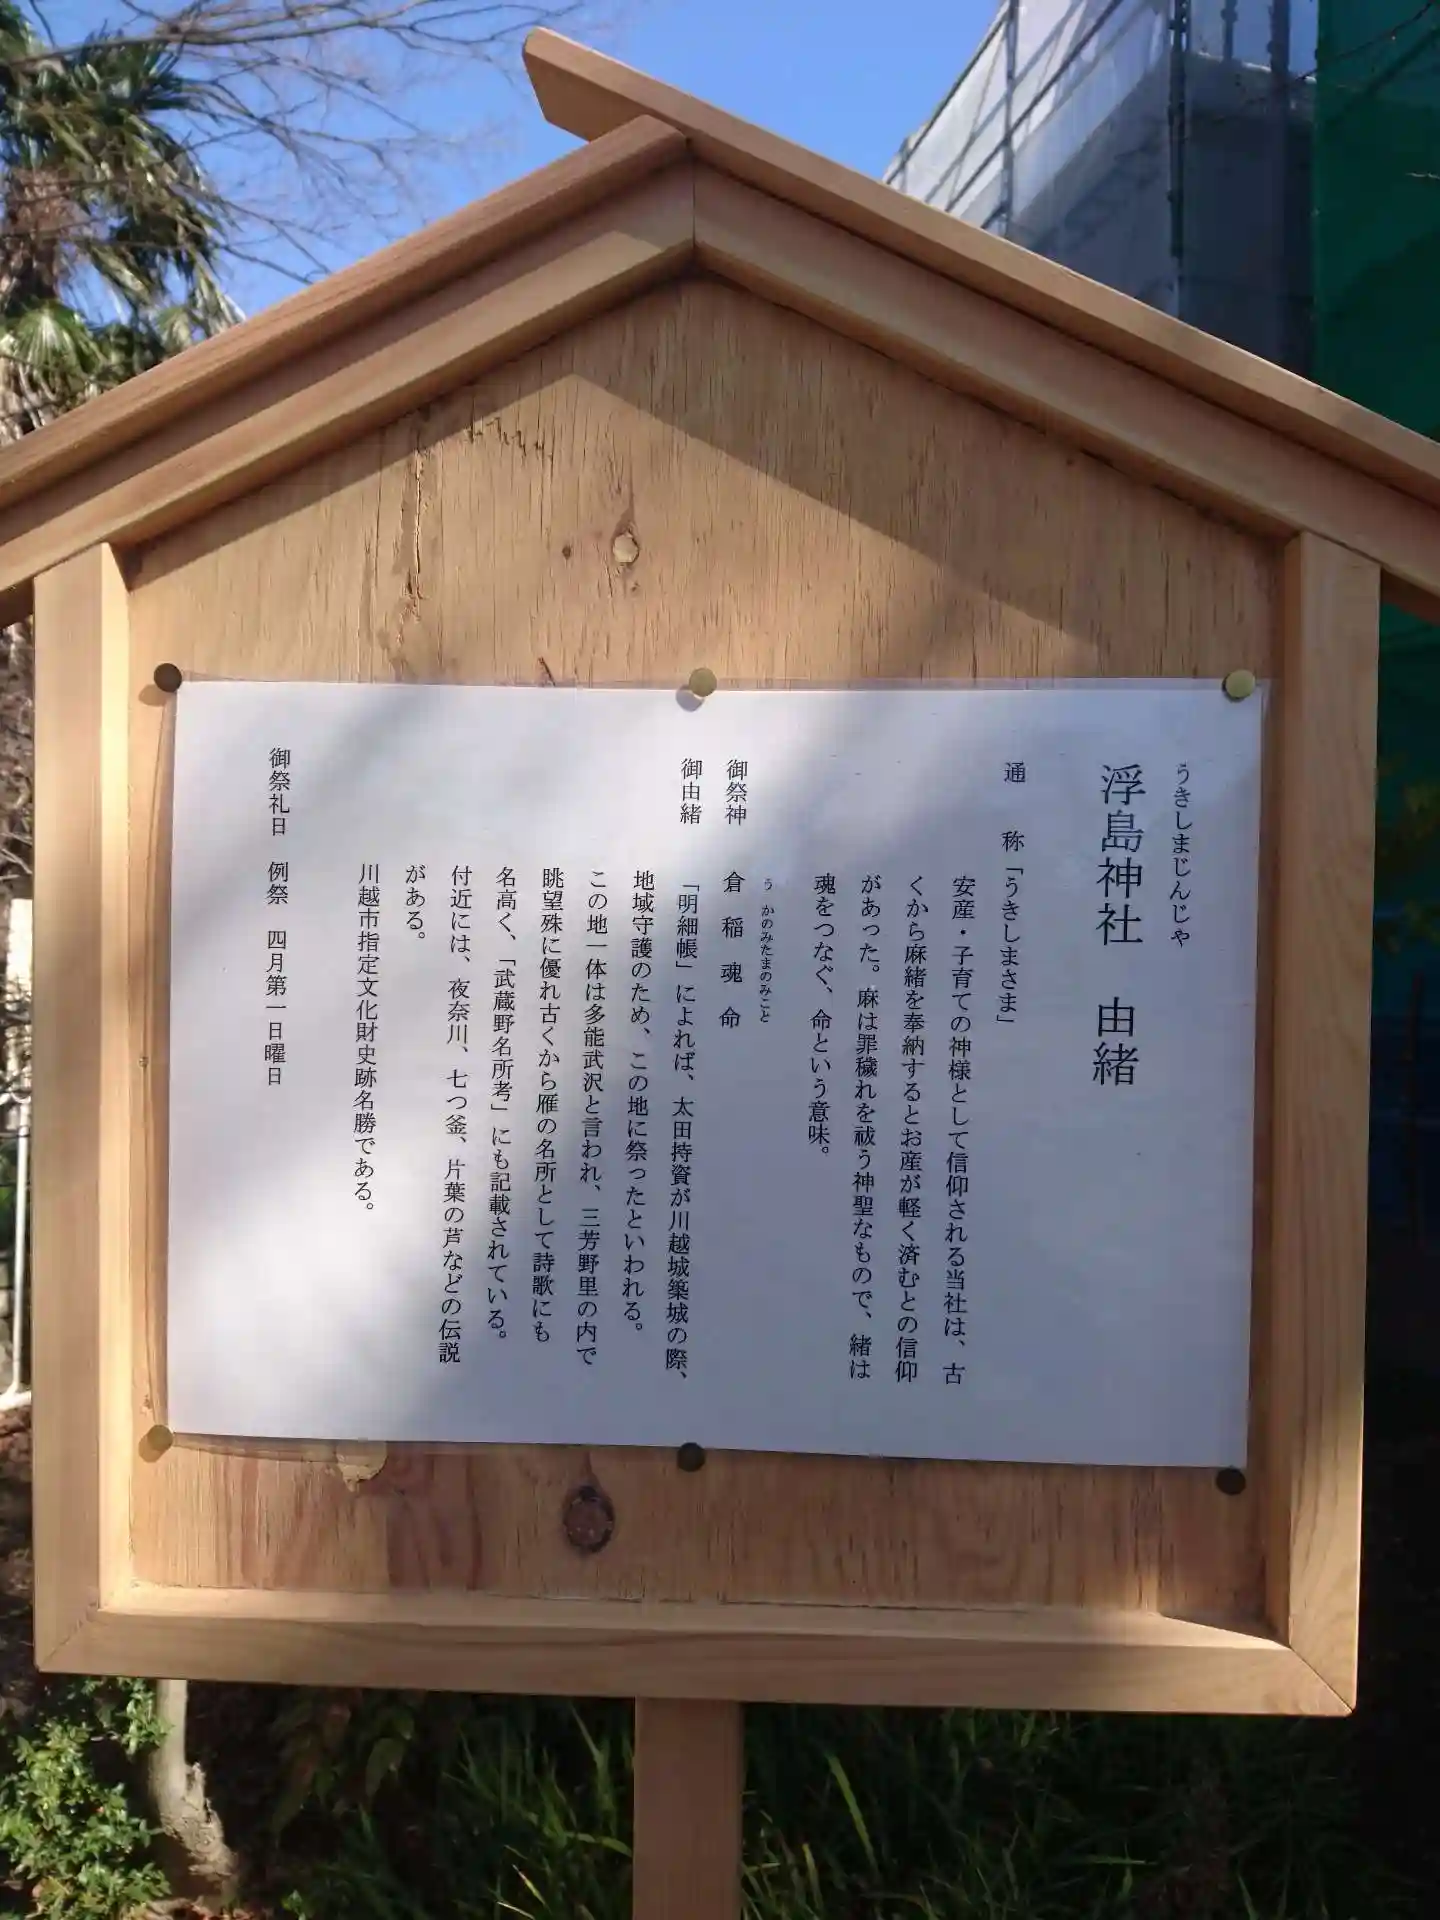 うきしまじんじゃ
浮島神社　由緒
通　称「うきしまさま」
安産・子育ての神様として信仰される当社は、古
くから麻緒を奉納するとお産が軽く済むとの信仰
があった。麻は罪穢れを祓う神聖なもので、緒は
魂をつなぐ、命という意味。
う　かのみたまのみこと
御祭神　倉　稲　魂　命
御由緒　「明細帳」によれば、太田持資が川越城築城の際、
地域守護のため、この地に祭ったといわれる。
この地一体は多能武沢と言われ、三芳野里の内で
眺望殊に優れ古くから雁の名所として詩歌にも
名高く、「武蔵野名所考」にも記載されている。
付近には、夜奈川、七つ釜、片葉の芦などの伝説
がある。
川越市指定文化財史跡名勝である。
御祭礼日　例祭　四月第一日曜日